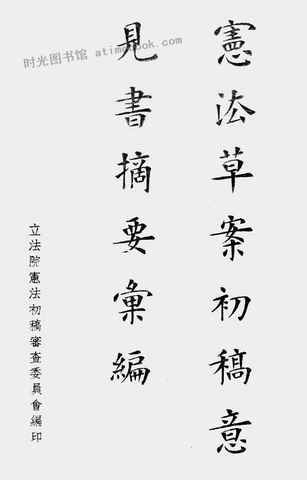 憲法草案初稿意
見書摘要彙編
立法院憲法初稿審查委員會編印
时光图书馆 atimebook.com